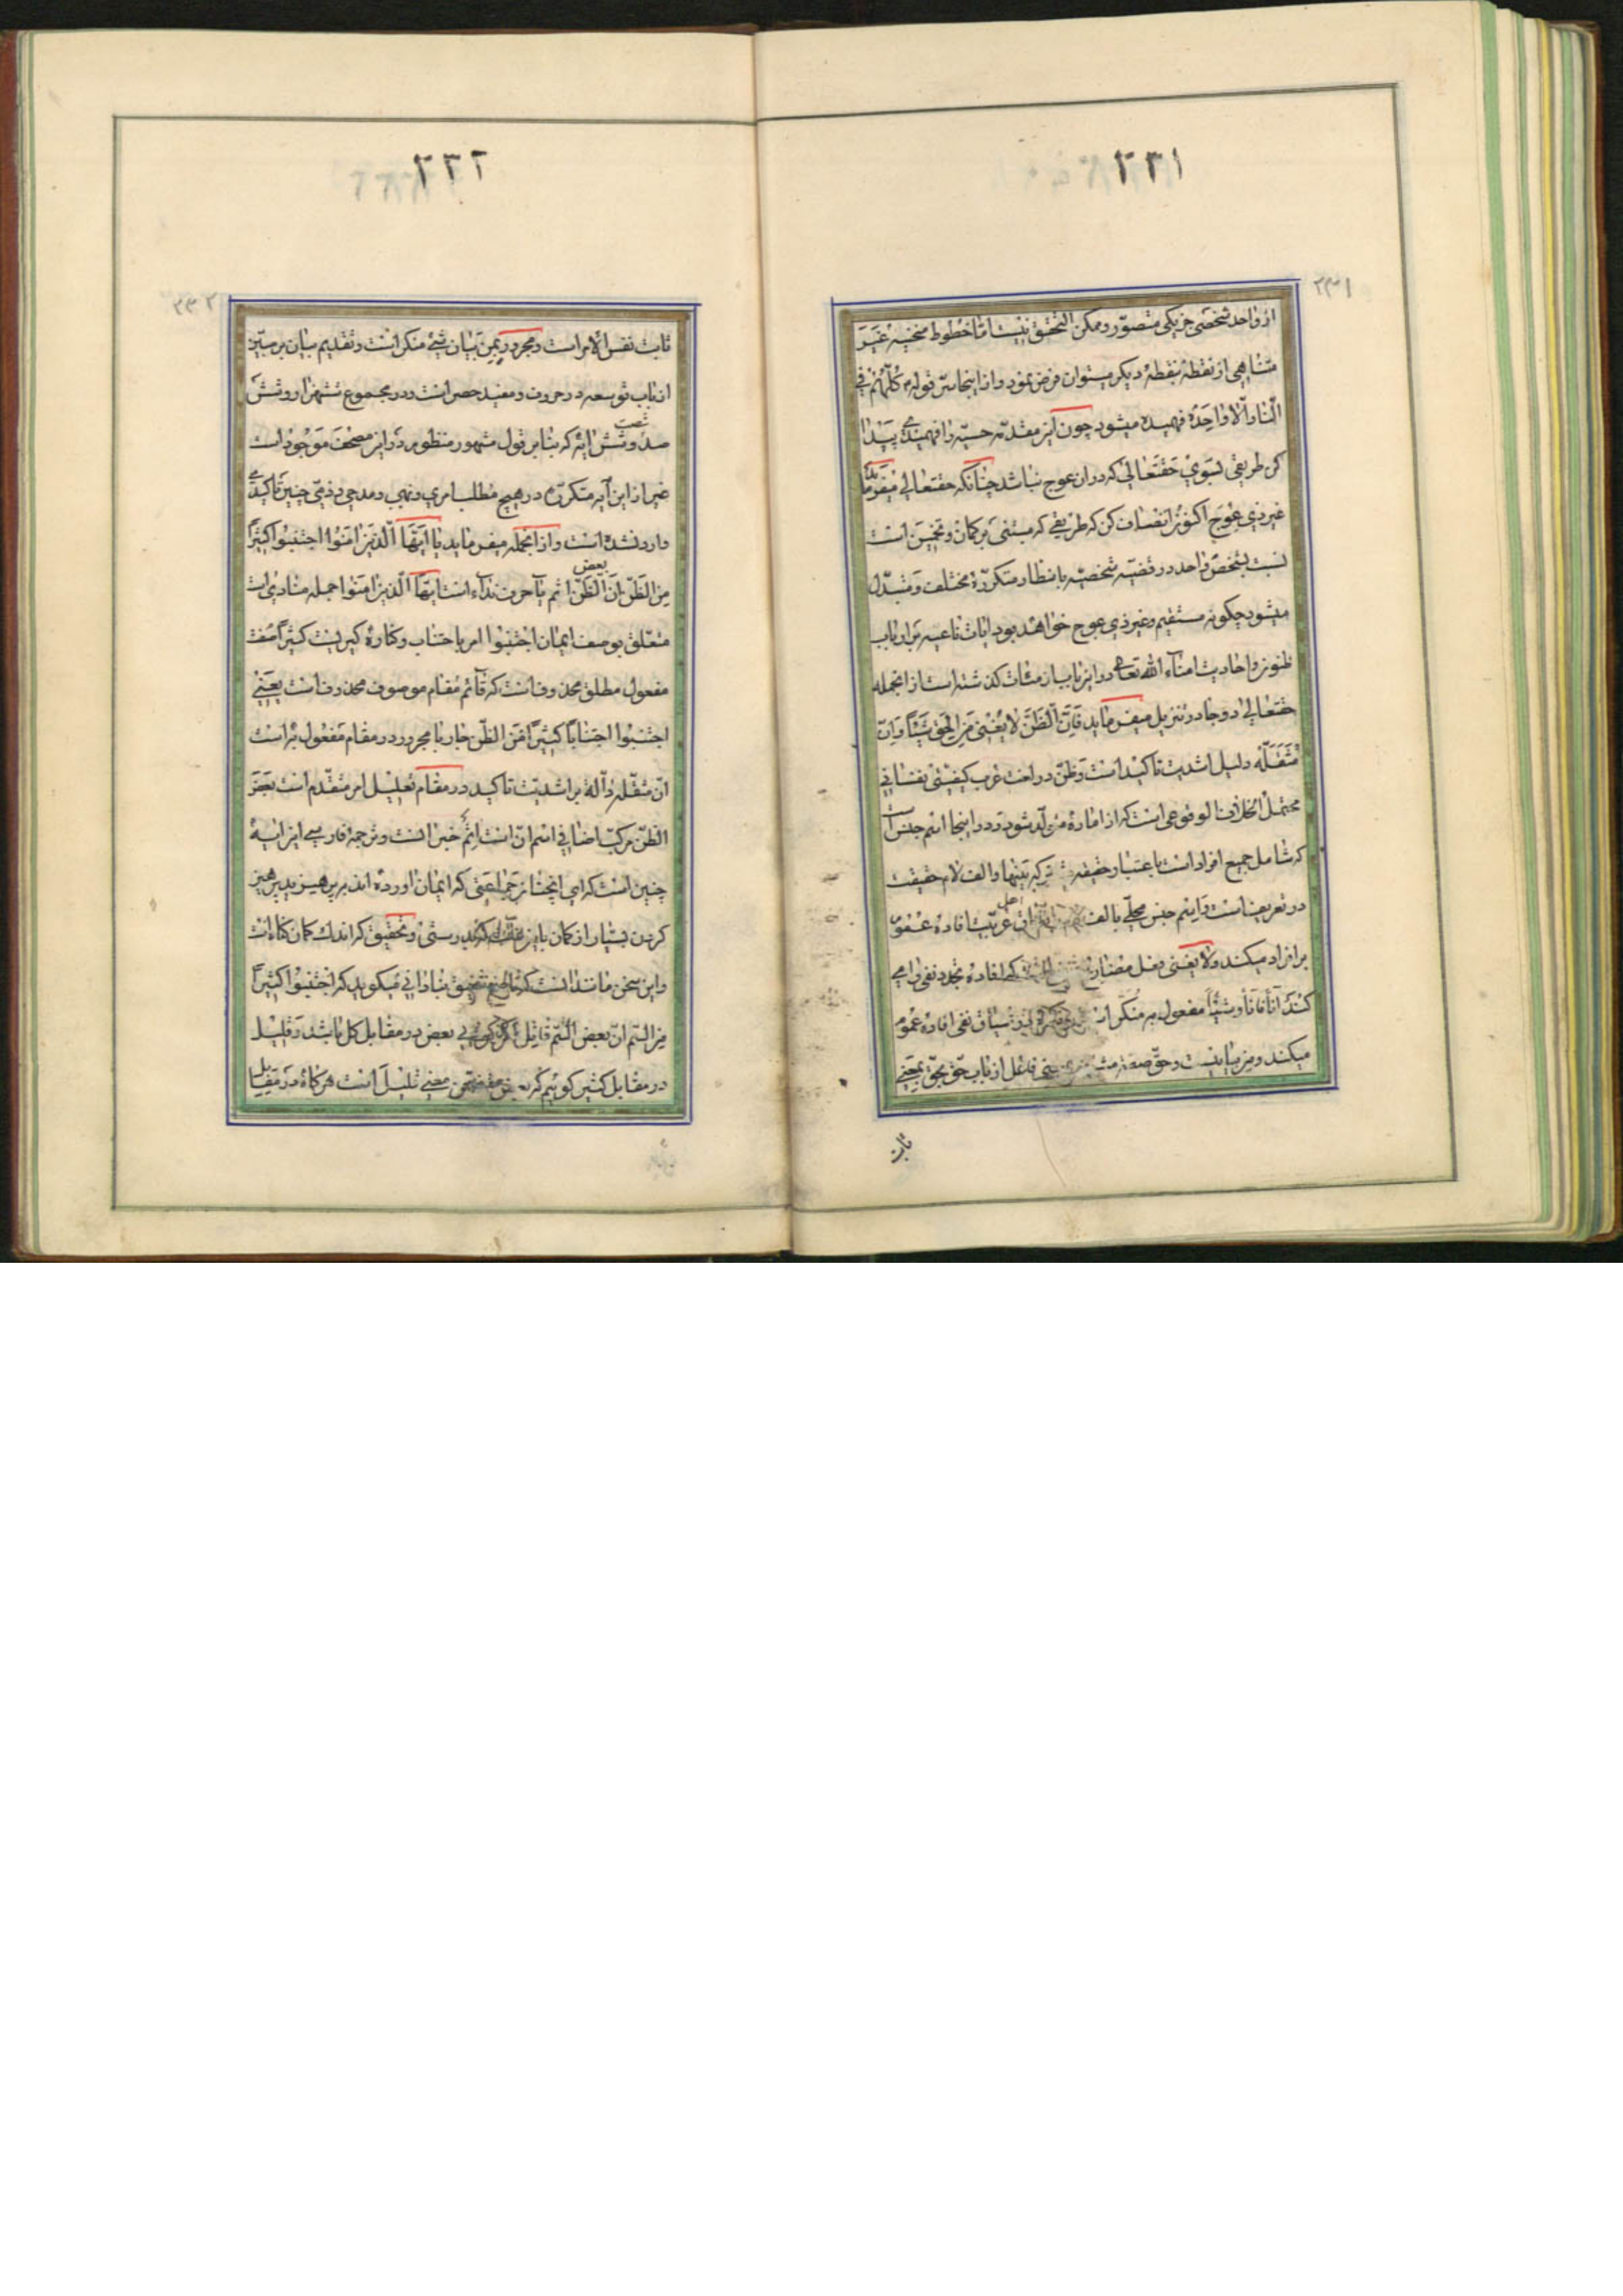 ٢٣١
٢٣١
از واحد شخصی جز یکی متصوّر و ممکن التحقق نیست امّا خطوط منحنیه غیر
متناهی از نقطهٔ بنقطهٔ دیکر میتوان فرض نمود و از اینجا سرّ قوله کلّهم فی
النار الّا واحدة فهمیده میشود چون این مقدّمه حسیّه را فهمیدی پیدا
کن طریقی بسوی حقتعالی که در ان عوج نباشد چنانکه حقتعالی میفرماید
غیر ذی عوج اکنون انصاف کن که طریقی که مبتنی بر کمان و تخمین است
نسبت بشخص واحد در قضیّه شخصیّه بانظار متکررّهٔ مختلف و متبدّل
میشود چکونه مستقیم و غیر ذی عوج خواهد بود ایات ناعیه بر ارباب
ظنون و احادیث امناء الله تعالی در این باب از مئات کذشته است از انجمله
حقتعالی در دو جا در تنزیل میفرماید فانّ الظنّ لا یغنی من الحق شیئاً و انّ
مثقّله دلیل اشدیت تاکید است و ظنّ در لغت عرب کیفیتی نفسانی
محتمل الخلاف الوقوعی است که از امارهٔ متولّد شود و در اینجا اسم جنس است
که شامل جمیع افراد است باعتبار حقیقة مشترکه بینها و الف لام حقیقت
در تعریف است و اسم جنس محلّی بالف اهل عربیّت افاده عموم
بر افراد میکند و لا یغنی فعل مضارع که افاده تجدد نفی را می
کند آناً فآناً و شیئاً مفعول به منکّر در سیاق نفی افادهٔ عموم
میکند و من بیانیست و حقّ صفة فاعل از باب حقّ یحقّ بمعنی
ثابت
٢٣٢
٢٣٢
ثابت نفس الامر است و مجرور بمن بیان شیء منکر است و تقدیم بیان بر مبیّن
از باب توسعه در حروف و مفید حصر است و در مجموع ششهزار و شش
صد و شصت و شش ایه که بنابر قول مشهور منظوم در این مصحف موجود است
غیر از این آیه متکررّه در هیچ مطلب امری و نهیی و مدحی و ذمّی چنین تاکیدی
وارد نشده است و از انجمله میفرماید یا ایّها الّذین امنوا اجتنبوا کثیراً
من الظنّ انّ بعض الظنّ اثم یا حرف نداء است ایّها الّذین امنوا جمله منادی است
متعلق بوصف ایمان اجتنبوا امر باجتناب و کناره کیریست کثیراً صفت
مفعول مطلق محذوف است که قائم مقام موصوف محذوف است یعنی
اجتنبوا اجتناباً کثیراً من الظنّ جار با مجرور در مقام مفعول به است
انّ مثقّله دآلهٔ بر اشدیّت تاکید در مقام تعلیل امر متقدّم است بعض
الظنّ مرکب اضافی اسم انّ است اثم خبر انست و ترجمهٔ فارسی این ایه
چنین است که ای انچنان جماعتی که ایمان اورده اند بپرهیزید پرهیز
کردن بسیار از کمان بدرستی و تحقیق که اندک کمان کناه است
و این سخن مانند انست که بنادانی میکوید که اجتنبوا کثیراً
من السّم انّ بعض السّم قاتل اکر کوئی بعض در مقابل کل باشد و قلیل
در مقابل کثیر کوئیم که بعض متضمّن معنی قلیل است هر کاه در مقابل